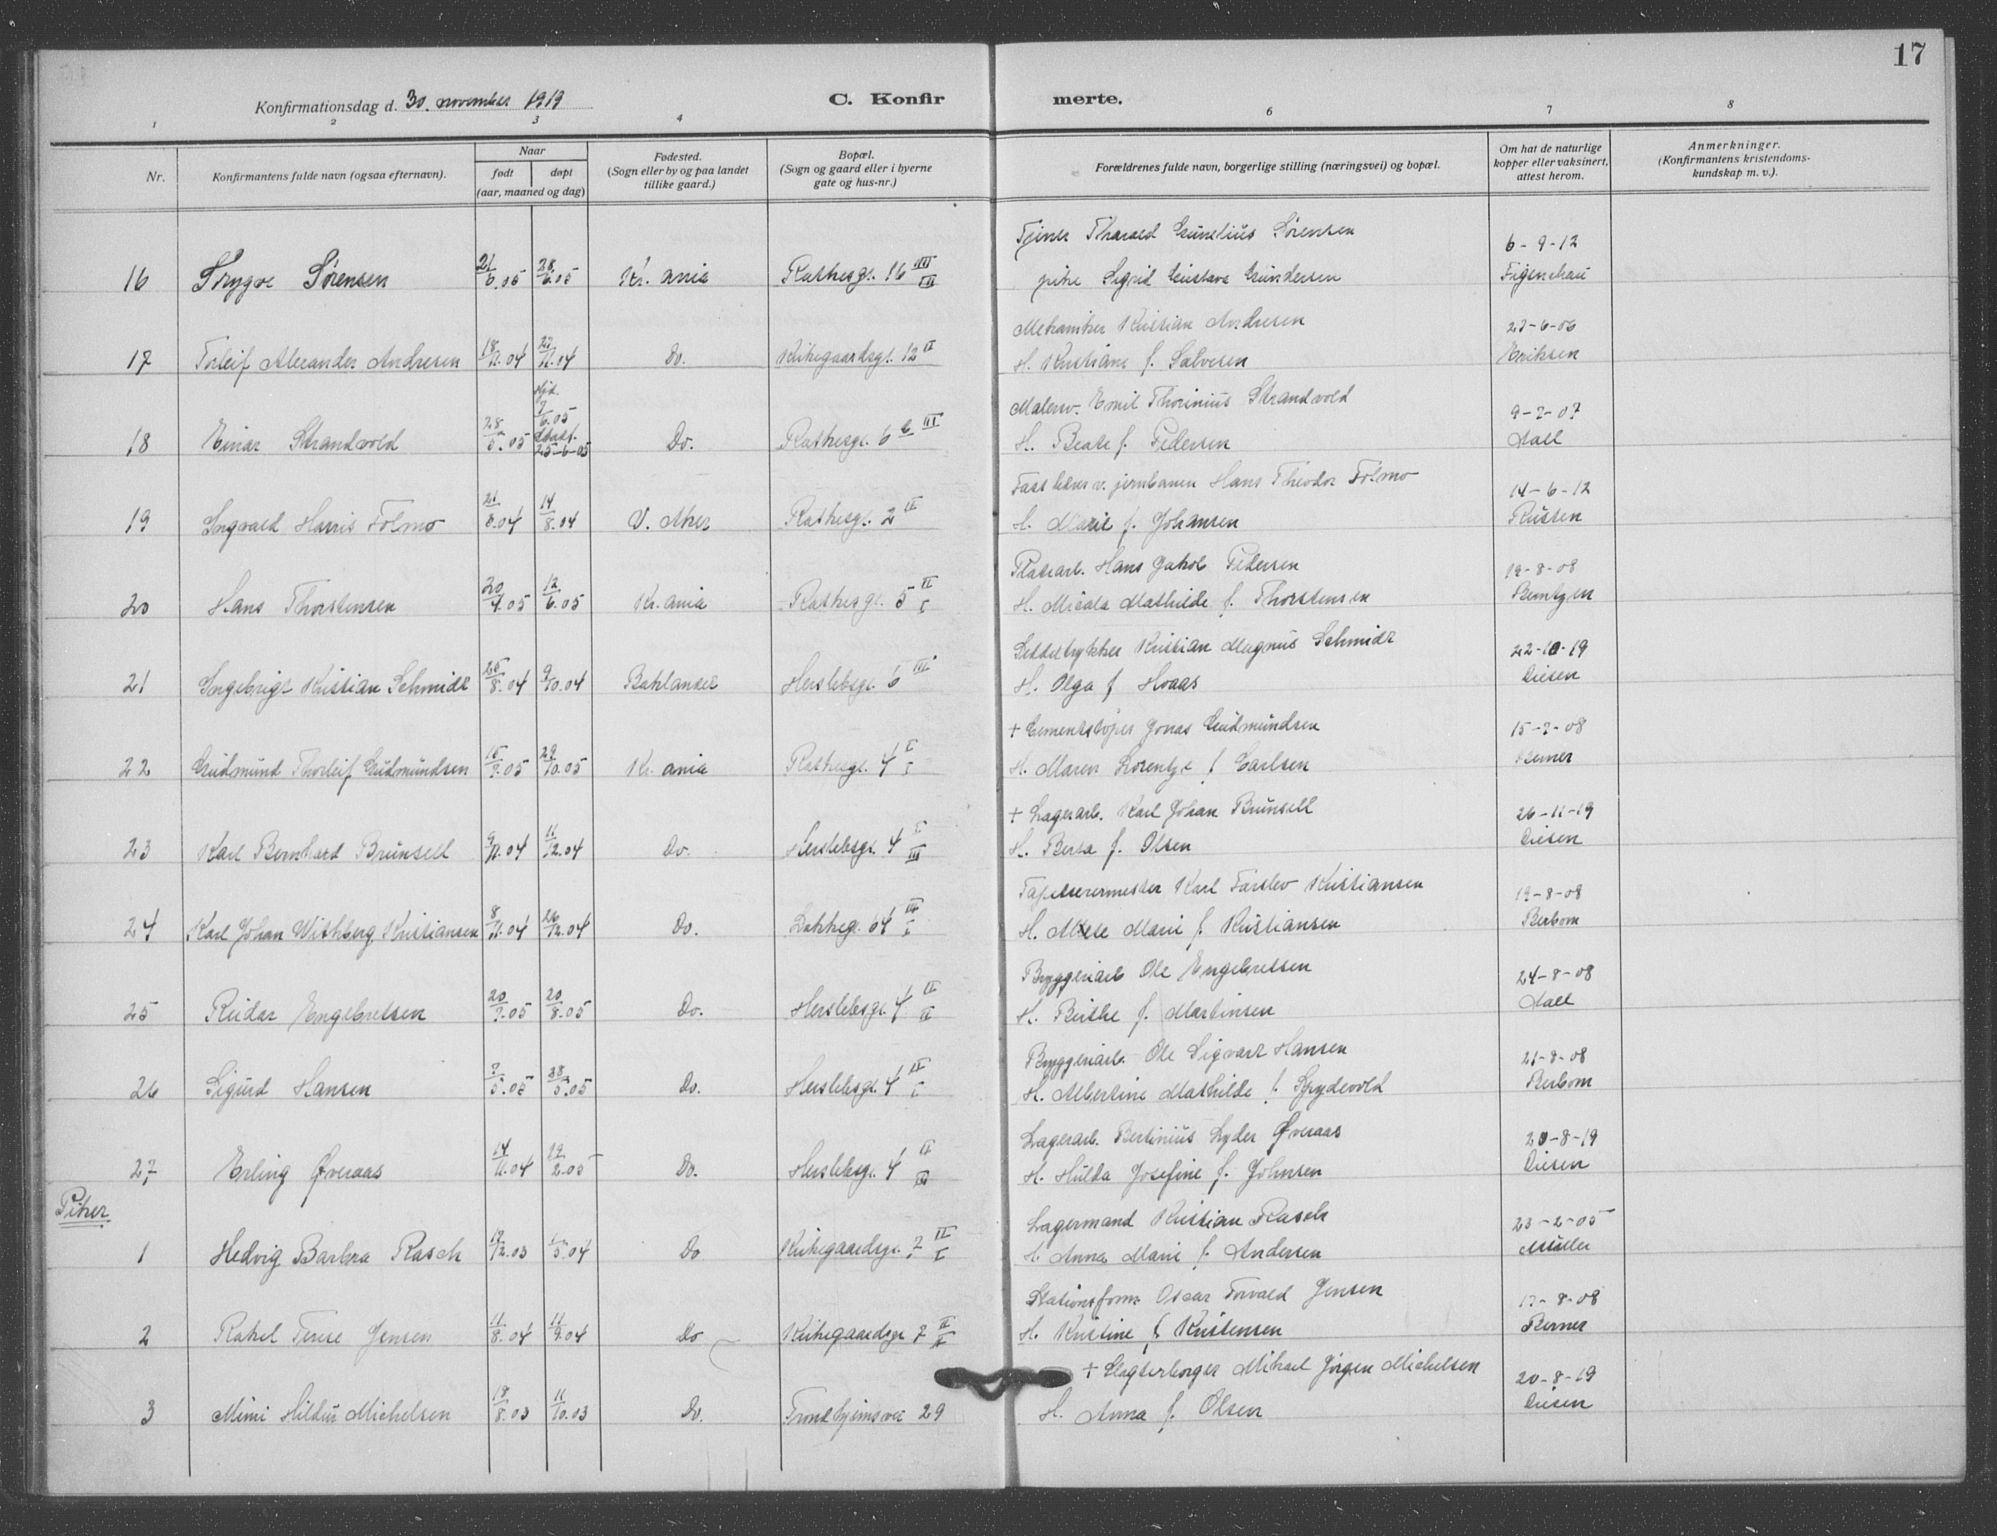 17
Konfirmationsdag d. 30. november 1919
C. Konfirmerte.
1 2 3 4 6 7 8
Nr.
Konfirmantens fulde navn (ogsaa efternavn).
Naar
født
døpt
(aar, maaned og dag)
Fødested.
(Sogn eller by og paa landet
tillike gaard.)
Bopæl.
(Sogn og gaard eller i byerne
gate og hus-nr.)
Forældrenes fulde navn, borgerlige stilling (næringsvei) og bopæl.
Om hat de naturlige
kopper eller vaksinert,
attest herom.
Anmerkninger.
(Konfirmantens kristendoms-
kundskap m. v.).
Tjener Tharald Sørensen 6-9-12
16 Trygve Sørensen 21/6.05 28/6.05 Kr.ania Rathesgt. 16 III pike Sigrid Gustava Gundersen
Mekaniker Kristian Andresen
17 Torleif Alexander Andresen 18/11.04 27/11.04 Do. Kirkegaardsgt. 12 II H. Kristiane f. Salvesen Eriksen
Malersv. Emil Thorinius Strandvold 9-2-07
18 Einar Strandvold 28/5.05 Hjd. 9/6.05 Stadf. 25-6-05 Do. Rathesgt. 6 b III H. Beate f. Pedersen Aall
jernbanen Hans Theodor Folmo 14-6-12
19 Ingvald Harris Folmo 21/8.04 14/8.04 V. Aker Rathesgt. 2 III H. Marie f. Johansen Rusten
Pladsarb. Hans Jakob Pedersen 19-8-08
20 Hans Thorstensen 20/4.05 12/6.05 Kr.ania Rathesgt. 5 II/I H. Micala Mathilde f. Thorstensen Berntzen
Kristian Magnus Schmidt 22-10-19
21 Ingebrigt Kristian Schmidt 25/8.04 9/10.04 Baklandet Herslebsgt. 6 III H. Olga f. Hvaas Diesen
+ Cementstøper Jonas Gudmundsen 15-2-08
22 Gudmund Thorleif Gudmundsen 15/9.05 29/10.05 Kr.ania Rathesgt. 4 I/I H. Maren Lorentze f. Carlsen Berner
+ Lagerarb. Karl Johan Brunsell 26-11-19
23 Karl Bernhard Brunsell 9/11.04 11/12.04 Do. Herslebsgt. 4 I/III H. Berta f. Olsen Diesen
Tapetserermester Karl Torslev Kristiansen 19-8-08
24 Karl Johan Withberg Kristiansen 8/11.04 26/12.04 Do. Lakkegt. 64 III/I H. Marie f. Kristiansen Berbom
Bryggeriarb. Ole Engebretsen 24-8-08
25 Reidar Engebretsen 20/7.05 20/8.05 Do. Herslebsgt. 4 II/II H. Birthe f. Martinsen Aall
Bryggeriarb. Ole Sigvart Hansen 21-8-08
26 Sigurd Hansen 7/5.05 28/5.05 Do. Herslebsgt. 4 II/I H. Albertine Mathilde f. Spydevold Berbom
Lagerarb. Bertinius Lyder Øveraas 20-8-19
27 Erling Øveraas 14/11.04 19/2.05 Do. Herslebsgt. 4 II/III H. Hulda Josefine f. Johnsen Diesen
Piker
Lagermand Kristian Rasch 23-2-05
1 Hedvig Barbra Rasch 19/12.03 1/5.04 Do Kirkegaardsgt. 7 II/I H. Anna Marie f. Andersen Müller
Stationsform. Oscar Torvald Jensen 17-8-08
2 Rakel Terese Jensen 11/8.04 11/9.04 Do Kirkegaardsgt 7 II/II H. Kristine f. Kristensen Berner
+ Slagterborger Mikael Jørgen Michelsen 20-8-19
3 Mimi Hildur Michelsen 18/8.03 11/10.03 Do. Trondhjemsvei 29 H. Anna f. Olsen Diesen